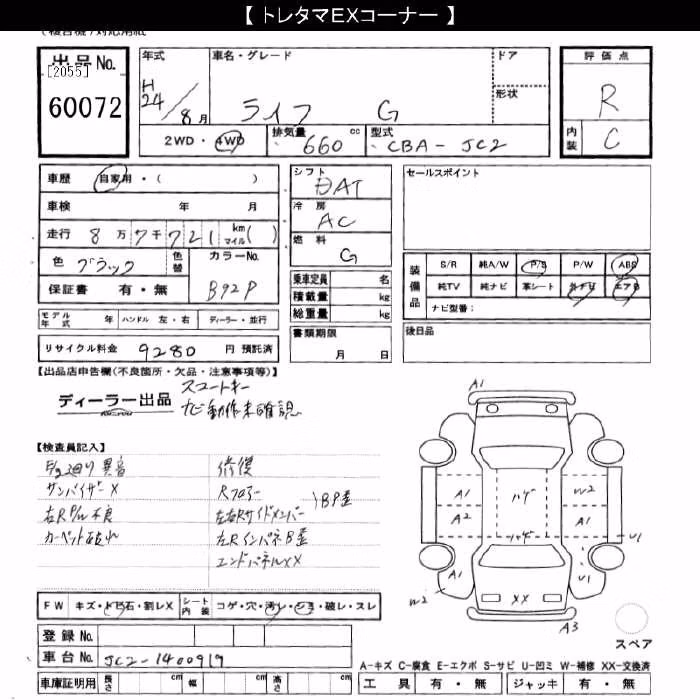 【 トレタマEXコーナー 】
出品No.
[2055]
60072
年式 車名・グレード ドア
H24/8月 ライフ G
形状
評価点
R
内装 C
2WD・4WD 排気量 660 cc 型式 CBA-JC2
車歴 自家用・( )
車検 年 月
走行 8万7千721 km マイル( )
色 ブラック 色替 カラーNo.
保証書 有・無 B92P
モデル年式 年 ハンドル 左・右 ディーラー・並行
リサイクル料金 9280 円 預託済
シフト
DAT
冷房
AC
燃料
G
乗車定員 名
積載量 kg
総重量 kg
書類期限
月 日
セールスポイント
装備品 S/R 純A/W P/S P/W ABS
純TV 純ナビ 革シート 外ナビ エアB
ナビ型番:
後日品
【出品店申告欄(不良箇所・欠品・注意事項等)】
スマートキー
ディーラー出品 ナビ動作未確認
【検査員記入】
E/g廻り異音 修復
サンバイザーX Rフロアー
右R P/W不良 左右Rサイドメンバー )BP歪
カーペット破れ 左RインパネB歪
エンドパネルXX
FW キズ・トビ石・割レX シート内装 コゲ・穴・汚レ・シミ・破レ・スレ
登録No.
車台No. JC2-1400919
車庫証明用 長さ cm 幅 cm 高さ cm
A1
ハゲ
A1 W2
A2 A1
ハゲ U1
A1 U1
W2 XX
A3
スペア
A-キズ C-腐食 E-エクボ S-サビ U-凹ミ W-補修 XX-交換済
工具 有・無 ジャッキ 有・無